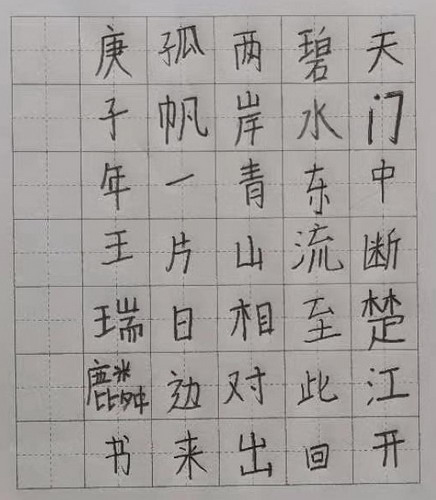 天门中断楚江开
碧水东流至此回
两岸青山相对出
孤帆一片日边来
庚子年王瑞麟书